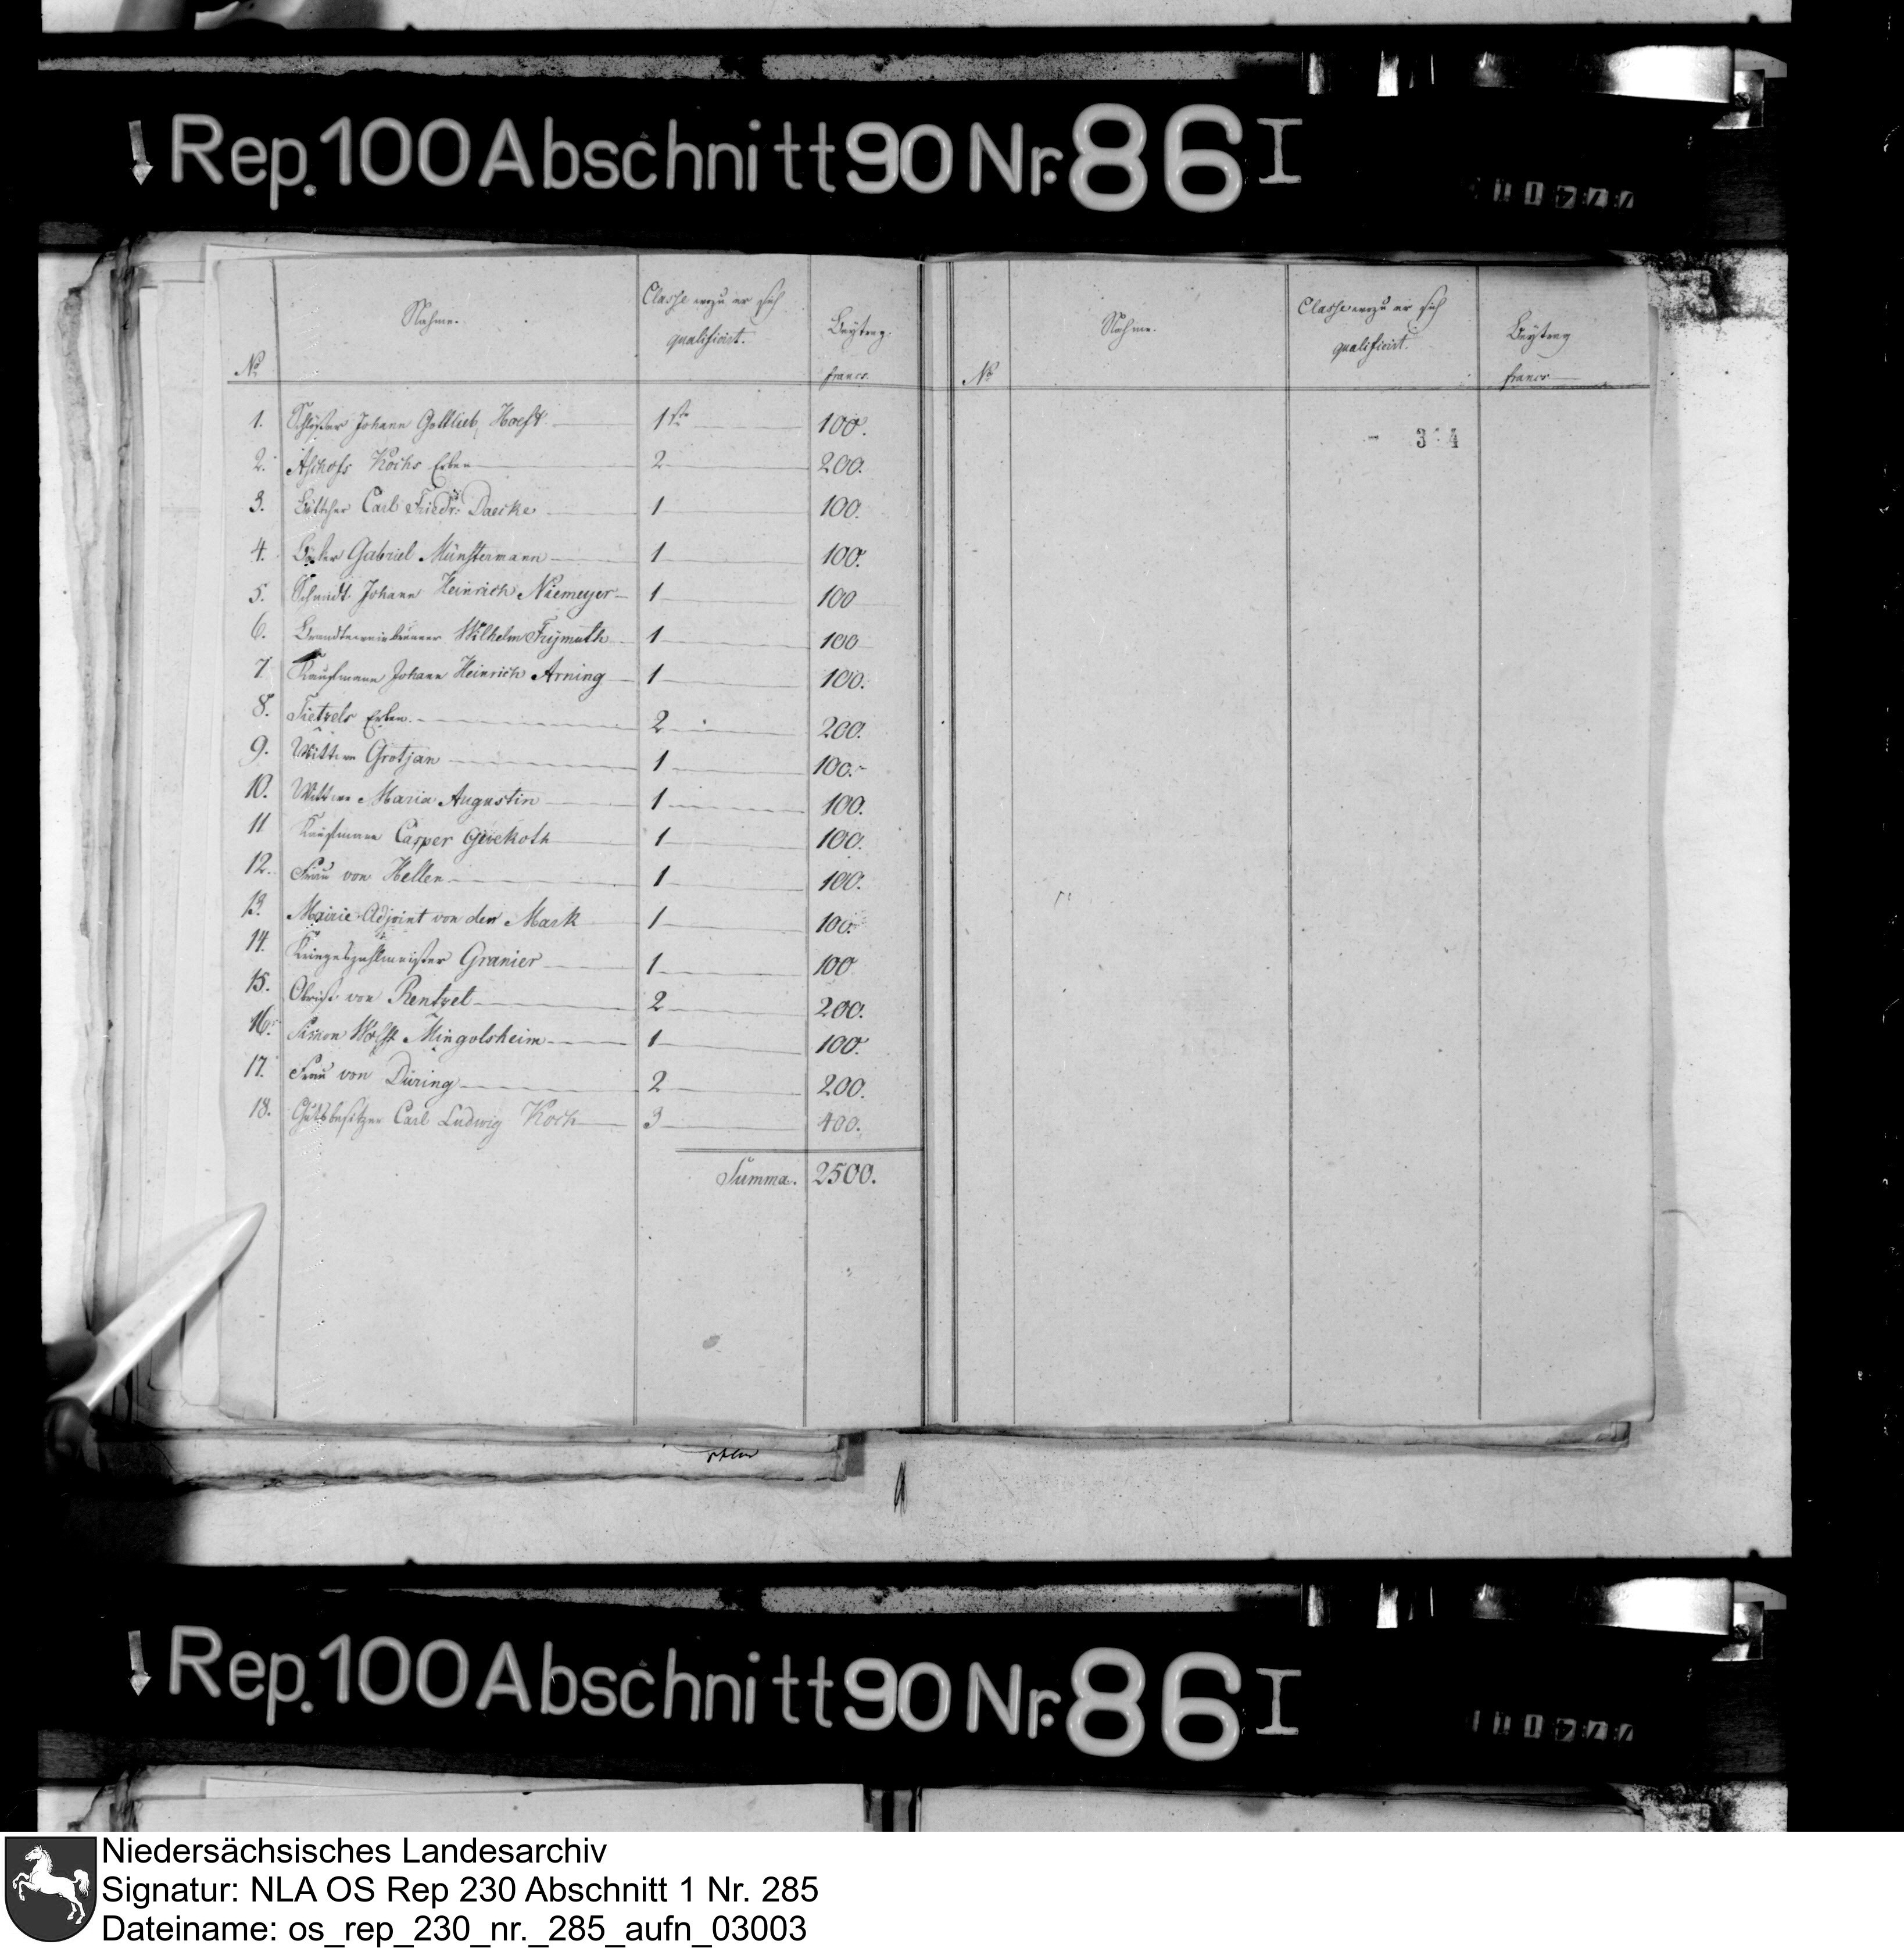 Rep. 100 Abschnitt 90 Nr. 86 I
No
Nahme.
Classe wozu er sich qualificirt.
Beytrag.
francs.
1. Schlößer Johann Gottlieb Hoeft 1ste 100.
2. Aschofs Kochs Erben 2 200.
3. Böttcher Carl Friedr. Daecke 1 100.
4. Becker Gabriel Münstermann 1 100.
5. Schmidt Johann Heinrich Niemeyer 1 100
6. Brandtweinbrenner Wilhelm Frymuth 1 100
7. Kaufmann Johann Heinrich Arning 1 100.
8. Tietzels Erben. 2 200.
9. Wittwe Grotjan 1 100.
10. Wittwe Maria Augustin 1 100.
11 Kaufmann Casper 1 100.
12. Frau von Hellen 1 100.
13. Mairie Adjoint von der Mark 1 100.
14. Kriegeszahlmeister Granier 1 100
15. Obrist von Rentzel 2 200.
16. Simon Wolff Mingolsheim 1 100.
17. Frau von Düring 2 200.
18. Gutsbesitzer Carl Ludwig Koch 3 400.
Summa. 2500.
No
Nahme.
Classe wozu er sich qualificirt.
Beytrag
francs
Rep. 100 Abschnitt 90 Nr. 86 I
Niedersächsisches Landesarchiv
Signatur: NLA OS Rep 230 Abschnitt 1 Nr. 285
Dateiname: os_rep_230_nr._285_aufn_03003